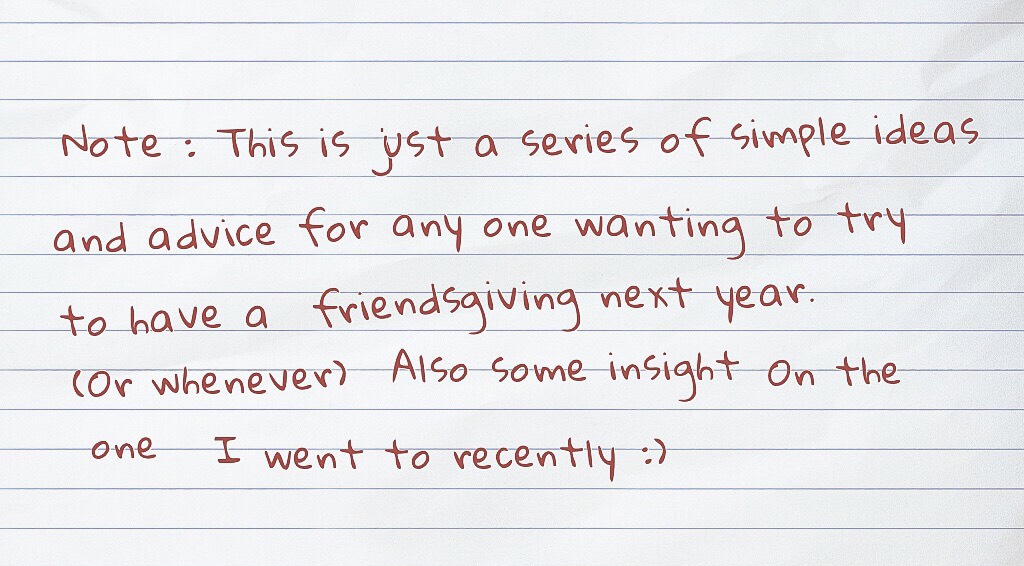 Note : This is just a series of simple ideas
and advice for any one wanting to try
to have a friendsgiving next year.
(Or whenever) Also some insight on the
one I went to recently :)